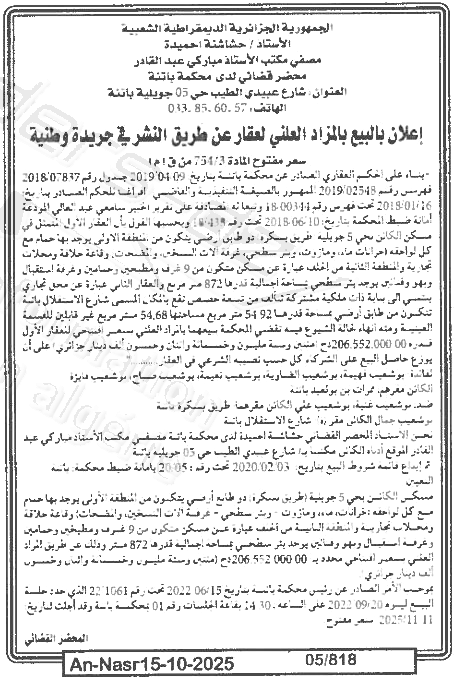 الجمهورية الجزائرية الديمقراطية الشعبية
الأستاذ / حشاشنة احميدة
مصفي مكتب الأستاذ مباركي عبد القادر
محضر قضائي لدى محكمة باتنة
العنوان: شارع عبيدي الطيب حي 05 جويلية باتنة
الهاتف: 033. 85. 60. 57
إعلان بالبيع بالمزاد العلني لعقار عن طريق النشر في جريدة وطنية
سعر مفتوح المادة 754/3 من ق إ م إ
-بناء على الحكم العقاري الصادر عن محكمة باتنة بتاريخ 2019/04/09 جدول رقم 2018/07837
فهرس رقم 2019/02548 الممهور بالصيغة التنفيذية والقاضي: إفراغا للحكم الصادر بتاريخ:
2018/01/16 تحت فهرس رقم 18/00344 وتبعا له المصادقة على تقرير الخبير سامعي عبد العالي المودعة
أمانة ضبط المحكمة بتاريخ: 10-06-2018 تحت رقم 18/438 وبحسبهما القول بأن العقار الأول المتمثل في
مسكن الكائن بحي 5 جويلية طريق بسكرة دو طابق أرضي يتكون من المنطقة الأولى يوجد بها حمام مع
كل لواحقه (خزانات ماء، ومازوت، وبئر سطحي، غرفة آلات السخن، والمضخات، وقاعة حلاقة ومحلات
تجارية والمنطقة الثانية من الخلف عبارة عن مسكن متكون من 9 غرف ومطبخين وحمامين وغرفة استقبال
وبهو وفنائين يوجد بئر سطحي بمساحة إجمالية قدرها 872 متر مربع والعقار الثاني عبارة عن محل تجاري
ينتمي إلى بناية ذات ملكية مشتركة تتألف من تسعة حصص تقع بالمكان المسمى شارع الاستقلال باتنة
تتكون من طابق أرضي بمساحة قدرها 54.92 متر مربع مساحتها 54,68 متر مربع غير قابلين للقسمة
العينية ومنه انهاء لحالة الشيوع فيه تقضي المحكمة ببيعهما بالمزاد العلني بسعر افتتاحي للعقار الأول
قدره 206.552.000 00دج (مئتين وستة مليون وخمسمائة واثنان وخمسون ألف دينار جزائري) على أن
يوزع حاصل البيع على الشركاء كل حسب نصيبه الشرعي في العقار..........."
لفائدة: بوشعيب فهيمة، بوشعيب الضاوية، بوشعيب نعيمة، بوشعيب صباح، بوشعيب فايزة
الكائن مقرهم: ممرات بن بولعيد باتنة
ضد: بوشعيب غنية، بوشعيب علي الكائن مقرهما: طريق بسكرة باتنة
بوشعيب جمال الكائن مقره: شارع الاستقلال باتنة
نحن الأستاذ المحضر القضائي حشاشنة احميدة لدى محكمة باتنة مصفي مكتب الأستاذ مباركي عبد
القادر الموقع أدناه الكائن مكتب بـ: شارع عبيدي الطيب حي 05 جويلية باتنة
تم إيداع قائمة شروط البيع بتاريخ: 2020/02/03 تحت رقم: 20/05 بأمانة ضبط محكمة: باتنة
التعيين
مسكن الكائن بحي 5 جويلية (طريق بسكرة) دو طابع أرضي يتكون من المنطقة الأولى يوجد بها حمام
مع كل لواحقه (خزانات، ماء، ومازوت - وبئر سطحي - غرفة آلات السخن، والمضخات) وقاعة حلاقة
ومحلات تجارية والمنطقة الثانية من الخلف عبارة عن مسكن متكون من 9 غرف ومطبخين وحمامين
وغرفة استقبال وبهو وفنائين يوجد بئر سطحي بمساحة إجمالية قدرها 872 متر وذلك عن طريق المزاد
العلني بسعر افتتاحي محدد بـ 206 552.000 00دج (مئتين وستة مليون وخمسمائة واثنان وخمسون
ألف دينار جزائري)
بموجب الأمر الصادر عن رئيس محكمة باتنة بتاريخ 2022/06/15 تحت رقم 22/1061 الذي حدد جلسة
البيع ليوم 2022/09/20 على الساعة: 14.30 بقاعة الجلسات رقم 01 بمحكمة باتنة وقد أجلت لتاريخ:
2025/11/11 سعر مفتوح
المحضر القضائي
An-Nasr15-10-2025
05/818